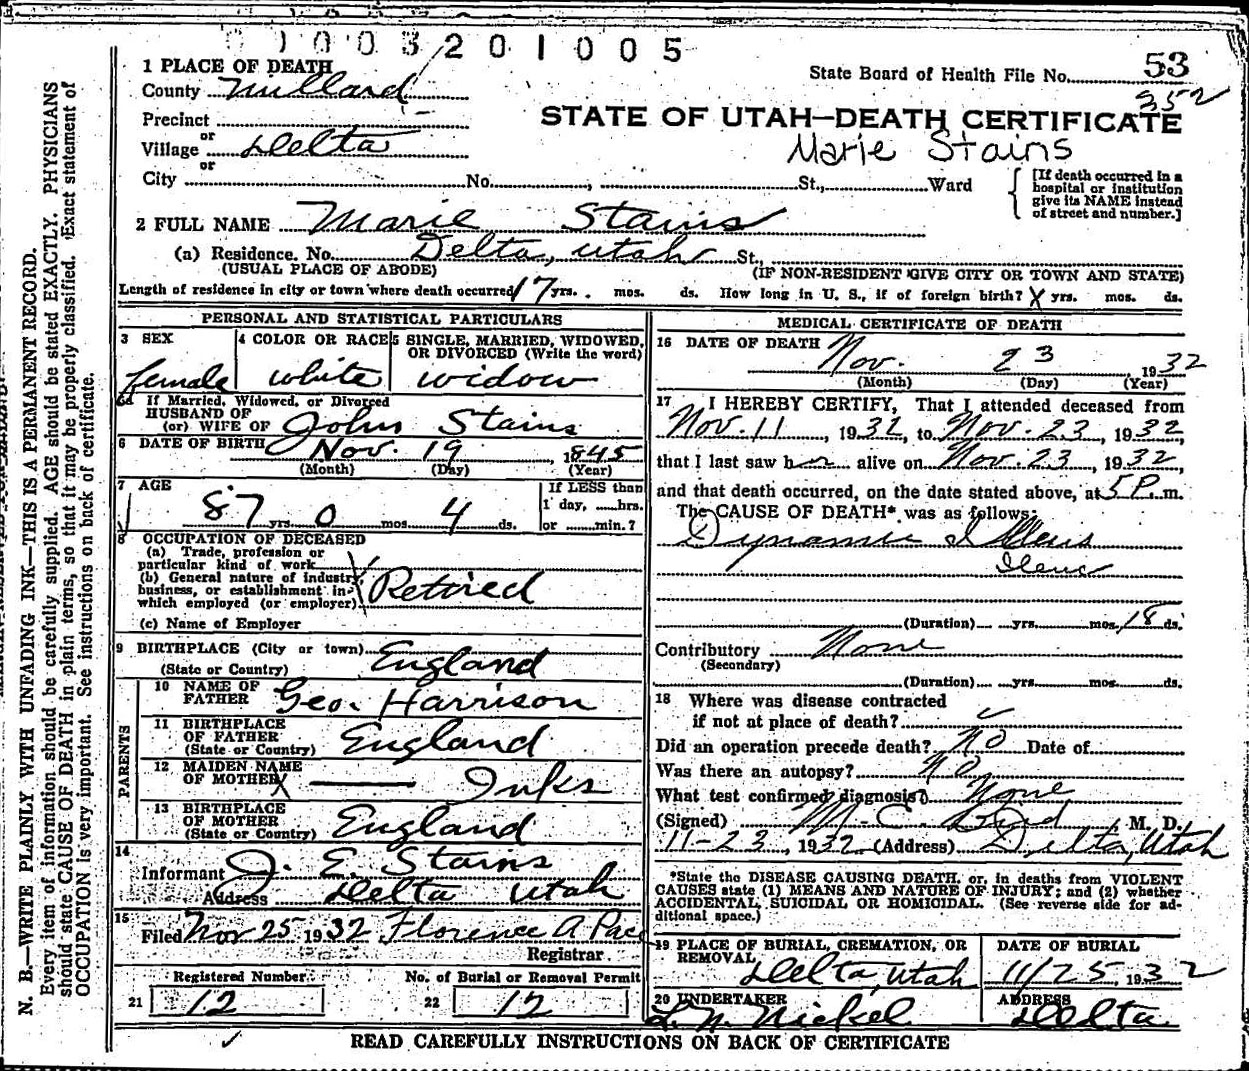 1003201005
1 PLACE OF DEATH
State Board of Health File No. 53
County Millard
352
Precinct
STATE OF UTAH—DEATH CERTIFICATE
or
Village Delta
Marie Stains
or
City No. , St., Ward
[If death occurred in a
hospital or institution
give its NAME instead
of street and number.]
2 FULL NAME Marie Stains
(a) Residence. No. Delta, Utah St.,
(USUAL PLACE OF ABODE) (IF NON-RESIDENT GIVE CITY OR TOWN AND STATE)
Length of residence in city or town where death occurred 17 yrs. mos. ds. How long in U. S., if of foreign birth? X yrs. mos. ds.
PERSONAL AND STATISTICAL PARTICULARS
3 SEX 4 COLOR OR RACE 5 SINGLE, MARRIED, WIDOWED,
OR DIVORCED (Write the word)
female white widow
5a If Married, Widowed, or Divorced
HUSBAND OF
(or) WIFE OF John Stains
6 DATE OF BIRTH Nov. 19, 1845
(Month) (Day) (Year)
7 AGE If LESS than
1 day, hrs.
87 yrs. 0 mos. 4 ds. or min.?
8 OCCUPATION OF DECEASED
(a) Trade, profession or
particular kind of work
(b) General nature of industry,
business, or establishment in
which employed (or employer) Retired
(c) Name of Employer
9 BIRTHPLACE (City or town) England
(State or Country)
PARENTS
10 NAME OF
FATHER Geo. Harrison
11 BIRTHPLACE
OF FATHER England
(State or Country)
12 MAIDEN NAME
OF MOTHER X —— Inks
13 BIRTHPLACE
OF MOTHER England
(State or Country)
14
Informant J. E. Stains
Address Delta Utah
15
Filed Nov 25 1932 Florence A Pace
Registrar
Registered Number No. of Burial or Removal Permit
21 12 22 12
MEDICAL CERTIFICATE OF DEATH
16 DATE OF DEATH Nov. 23, 1932
(Month) (Day) (Year)
17 I HEREBY CERTIFY, That I attended deceased from
Nov. 11, 1932, to Nov. 23, 1932,
that I last saw her alive on Nov. 23, 1932,
and that death occurred, on the date stated above, at 5 P. m.
The CAUSE OF DEATH* was as follows:
Dynamic Illeus
Ileus
(Duration) yrs. mos. 18 ds.
Contributory None
(Secondary)
(Duration) yrs. mos. ds.
18 Where was disease contracted
if not at place of death? ✓
Did an operation precede death? No Date of
Was there an autopsy? No
What test confirmed diagnosis? None
(Signed) M. C. Bird, M. D.
11-23, 1932 (Address) Delta, Utah
*State the DISEASE CAUSING DEATH, or, in deaths from VIOLENT
CAUSES state (1) MEANS AND NATURE OF INJURY; and (2) whether
ACCIDENTAL, SUICIDAL OR HOMICIDAL. (See reverse side for ad-
ditional space.)
19 PLACE OF BURIAL, CREMATION, OR
REMOVAL Delta, Utah
DATE OF BURIAL
11/25, 1932
20 UNDERTAKER
L. N. Nickel
ADDRESS
Delta
READ CAREFULLY INSTRUCTIONS ON BACK OF CERTIFICATE
N. B.—WRITE PLAINLY WITH UNFADING INK—THIS IS A PERMANENT RECORD.
Every item of information should be carefully supplied. AGE should be stated EXACTLY. PHYSICIANS
should state CAUSE OF DEATH in plain terms, so that it may be properly classified. Exact statement of
OCCUPATION is very important. See instructions on back of certificate.